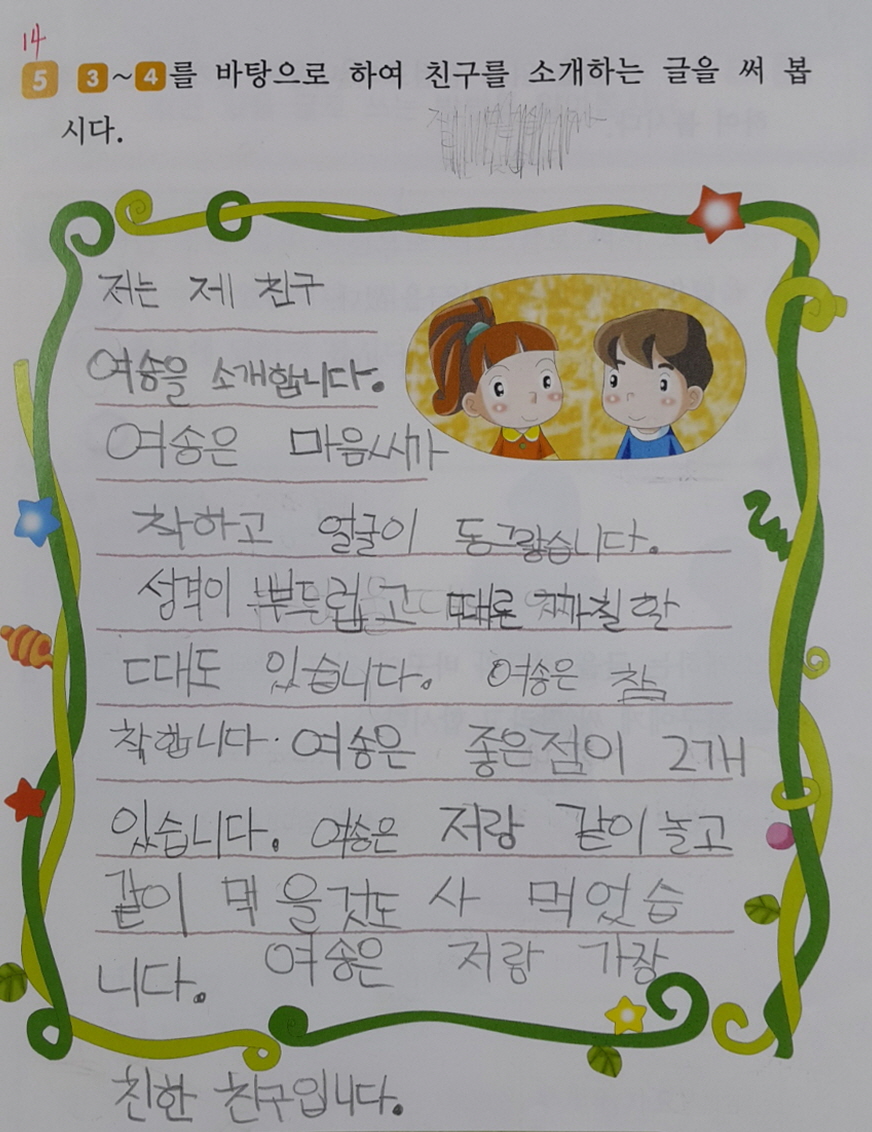 14
5 3~4를 바탕으로 하여 친구를 소개하는 글을 써 봅
시다.
저는 제 친구
여송을 소개합니다.
여송은 마음씨가
착하고 얼굴이 동그랗습니다.
성격이 뿌두럽고 때론 까칠할
때도 있습니다. 여송은 참
착합니다. 여송은 좋은점이 2개
있습니다. 여송은 저랑 같이 놀고
같이 먹을것도 사 먹었습
니다. 여송은 저랑 가장
친한 친구입니다.